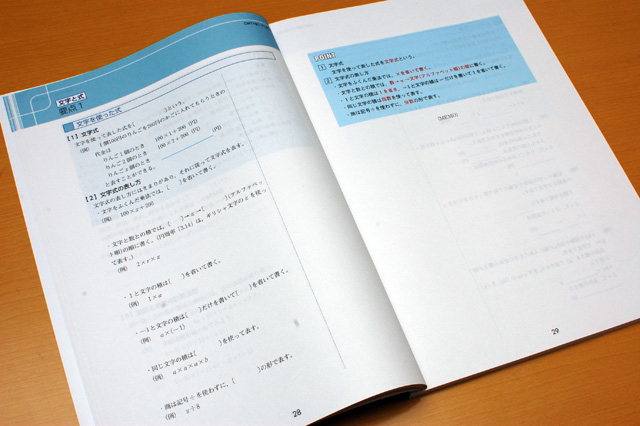 文字と式
要点1
文字を使った式
【1】文字式
文字を使って表した式を(　　)という。
(例) 1個100円のりんごを200円のかごに入れてもらうときの
代金は
りんご1個のとき 100×1+200 (円)
りんご2個のとき 100×2+200 (円)
りんごx個のとき (円)
と表すことができる。
【2】文字式の表し方
文字式の表し方にはきまりがあり、それに従って文字式を表す。
・文字をふくんだ乗法では、(　　)を省いて書く。
(例) 100×x+200
・文字と数との積では、(　　)→(　　)(アルファベッ
ト順)の順に書く。(円周率「3.14」は、ギリシャ文字のπを使っ
て表す。)
(例) 2×r×π
・1と文字の積は(　　)を省いて書く。
(例) 1×a
・−1と文字の積は(　　)だけを書いて(　　)を省いて書く。
(例) a×(−1)
・同じ文字の積は(　　)を使って表す。
(例) a×a×a×b
・商は記号÷を使わずに、(　　)の形で表す。
(例) x÷8
28
POINT
1 文字式
文字を使って表した式を文字式という。
2 文字式の表し方
・文字をふくんだ乗法では、×を省いて書く。
・文字と数との積では、数→文字(アルファベット順)の順に書く。
・1と文字の積は1を省き、−1と文字の積は−だけを書いて1を省いて書く。
・同じ文字の積は指数を使って表す。
・商は記号÷を使わずに、分数の形で表す。
(MEMO)
29